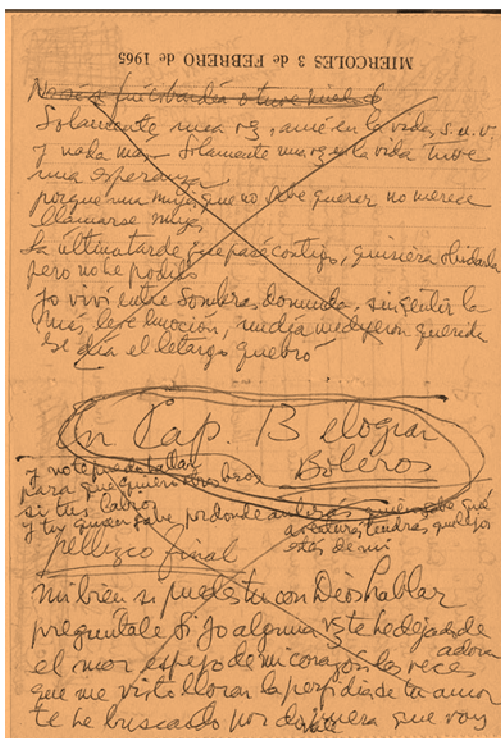 MIERCOLES 3 de FEBRERO de 1965
No sé si fui cobarde o tuve miedo
Solamente una vez, amé en la vida, s. u. v.
y nada más Solamente una vez en la vida tuve
una esperanza
porque una mujer que no sabe querer no merece
llamarse mujer
La última tarde que pasé contigo, quisiera olvidarla
pero no he podido
Yo viví entre sombras, dormida, sin sentir la
más leve emoción, un día me dijeron querida
ese día el letargo quebró
En Cap. B elogiar
Boleros
y no te puedo hallar
para que quiero otros besos
si tus labios
y tu quien sabe por donde andarás quien sabe qué
aventuras tendrás que lejos
estás de mí
pellizco final
Mi bien si puedes tu con Dios hablar
pregúntale si yo alguna vez te he dejado de
adorar
el mar espejo de mi corazón las veces
que me visto llorar la perfidia de tu amor
te he buscando por donde quiera que voy